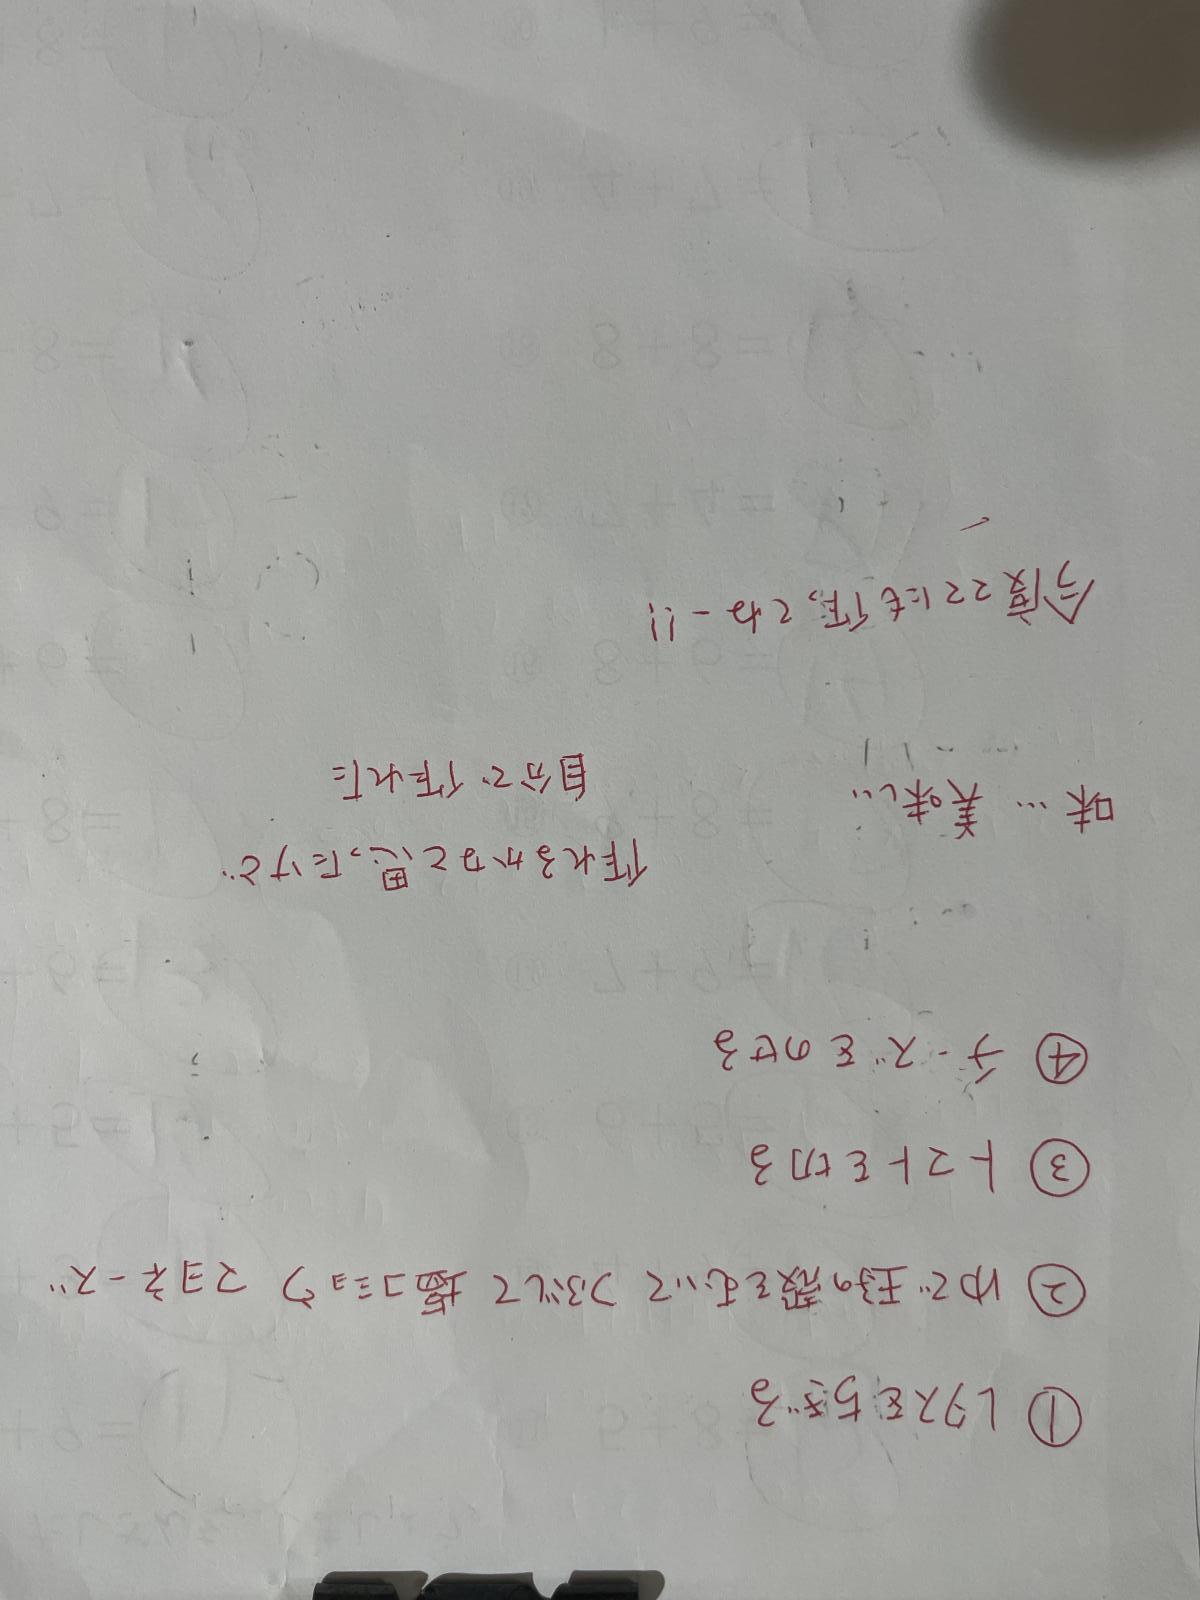 ① レタスをちぎる
② ゆで玉子の殻をむいて つぶして 塩コショウ マヨネーズ
③ トマトを切る
④ チーズをのせる
作れるかなと思ったけど
味… 美味しい
自分で作れた
今度ママにも作ってねー!!